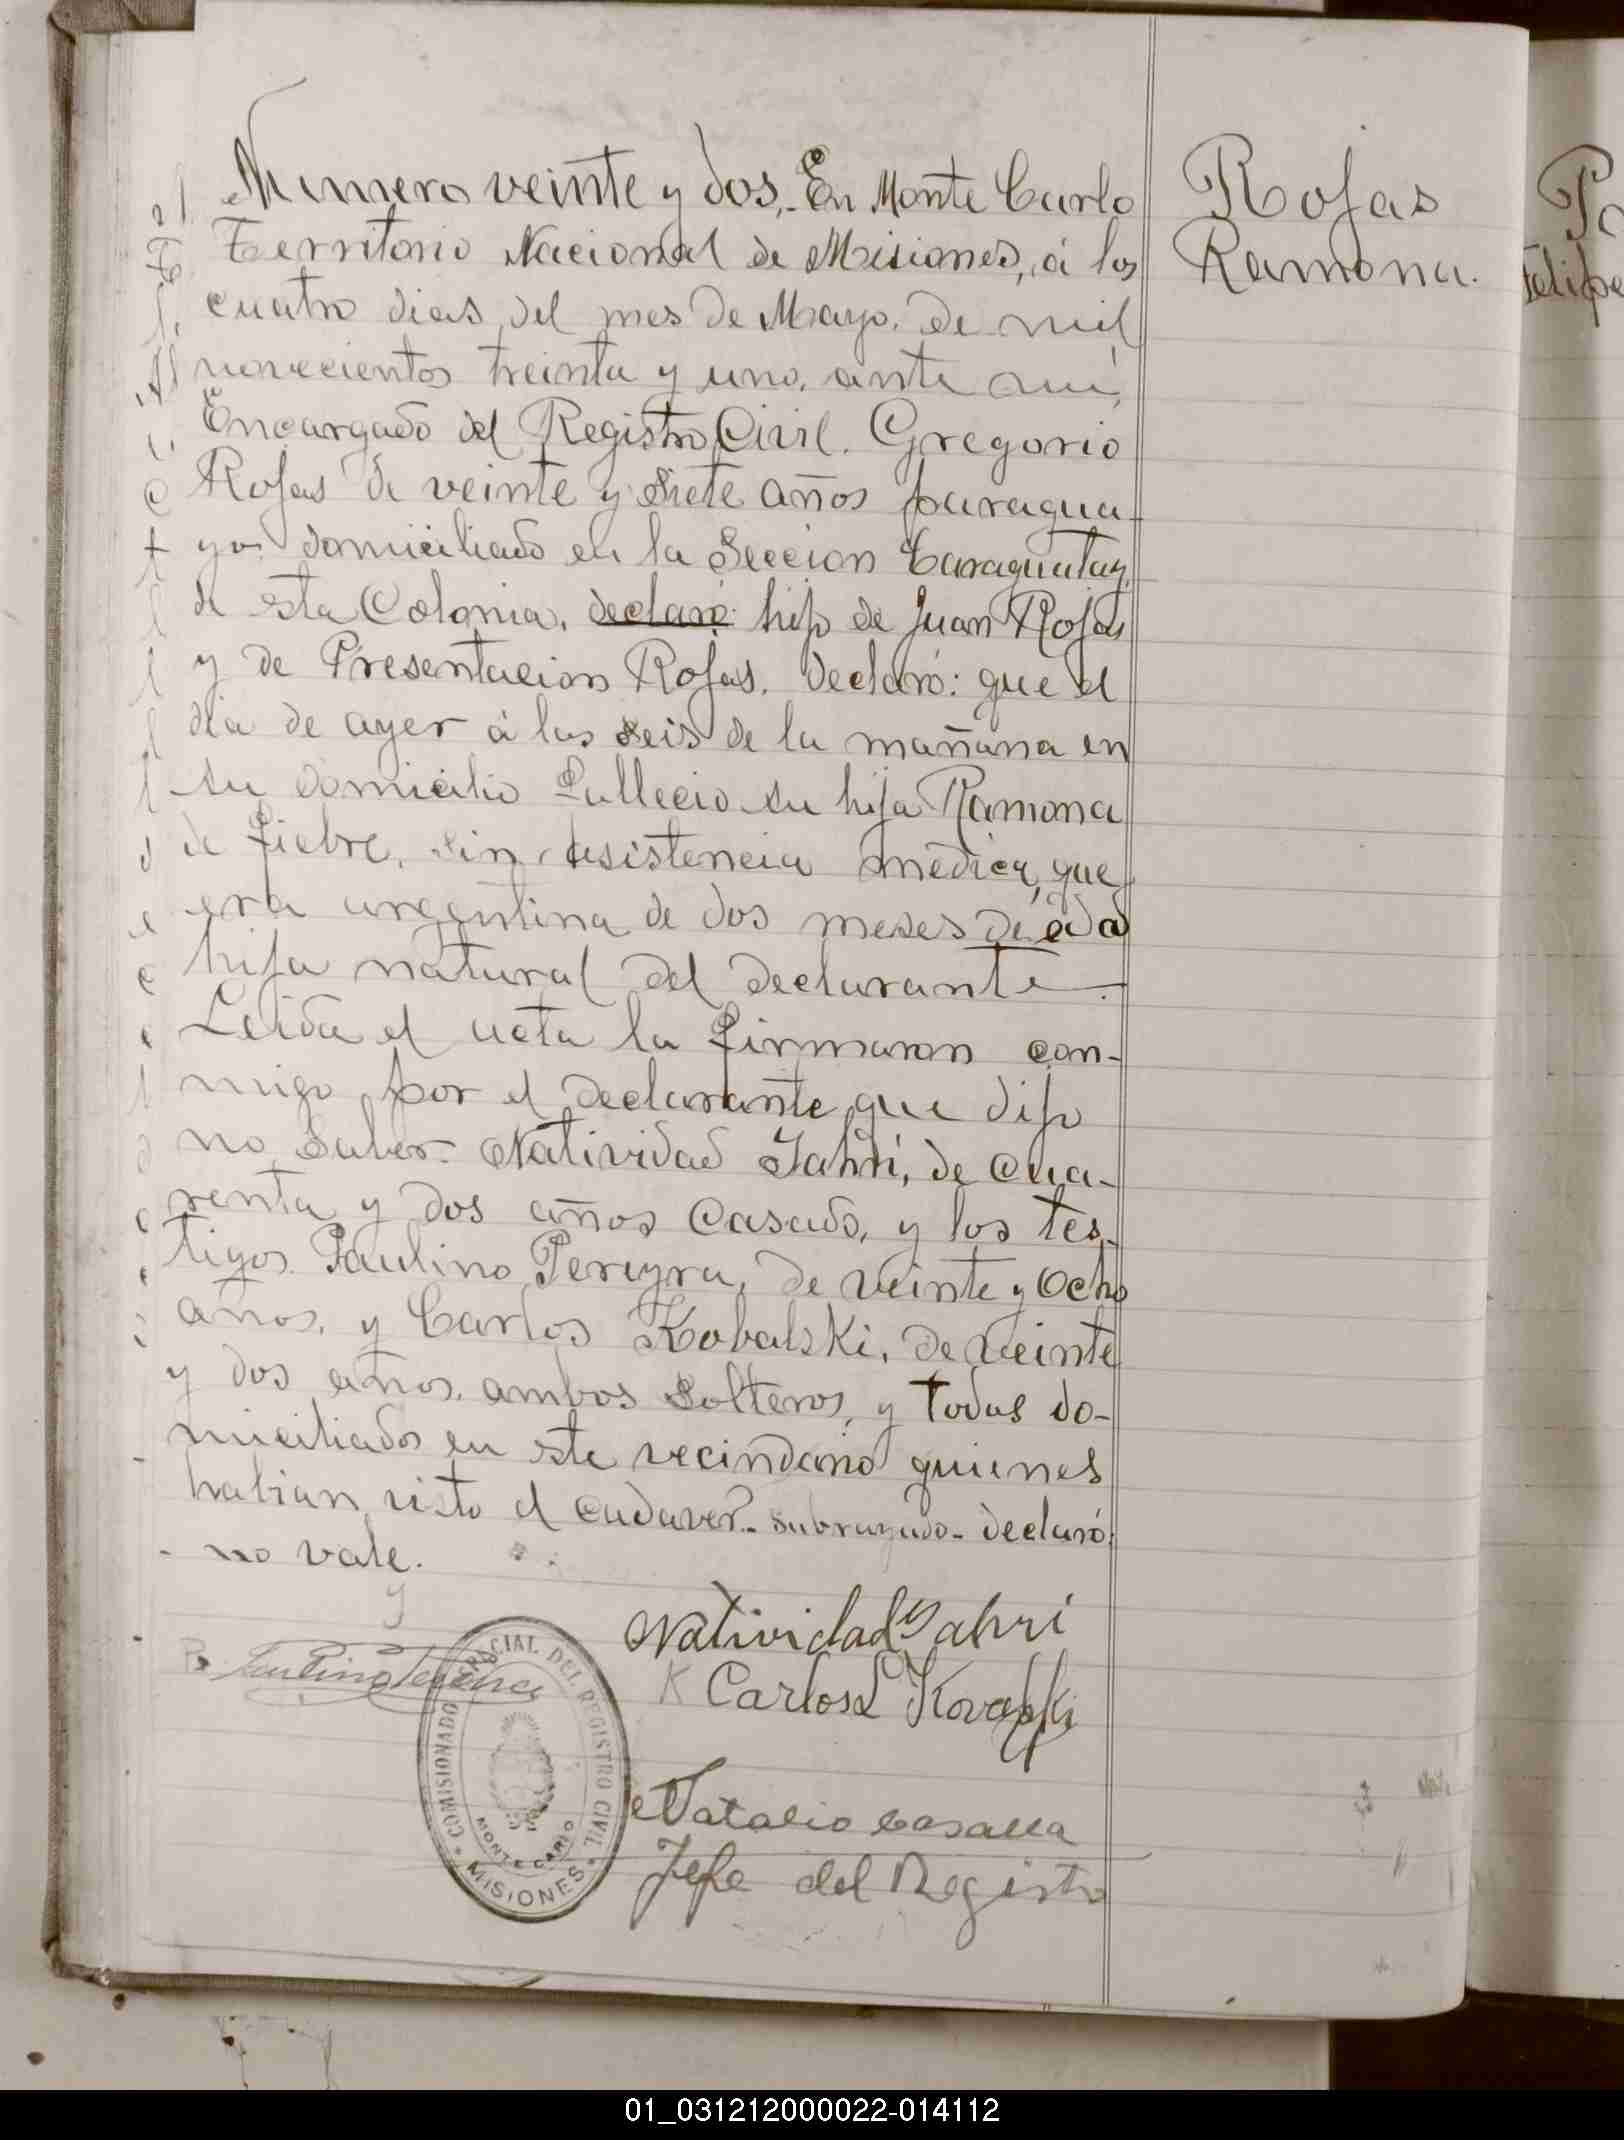 Numero veinte y dos.- En Monte Carlo
Territorio Nacional de Misiones, á los
cuatro dias del mes de Mayo. de mil
novecientos treinta y uno. ante mi,
Encargado del Registro Civil. Gregorio
Rojas de veinte y siete años paragua-
yo. domiciliado en la Seccion Caraguatay
de esta Colonia. declaró: hijo de Juan Rojas
y de Presentacion Rojas. declaró: que el
dia de ayer á las seis de la mañana en
su domicilio fallecio su hija Ramona
de fiebre. sin asistencia médica, que
era argentina de dos meses de edad
hija natural del declarante.
Leida el acta la firmaron con-
migo por el declarante que dijo
no saber. Natividad Yahri, de cua-
renta y dos años casado, y los tes-
tigos Paulino Pereyra, de veinte y ocho
años. y Carlos Kobalski. de veinte
y dos años. ambos solteros, y todos do-
miciliados en este vecindario quienes
habian visto el cadaver.- subrayado- declaró:
no vale.
Rojas
Ramona.
Felipe
Natividad Yahri
Paulino Pereyra
Carlos Kovalski
Natalio Casalla
Jefe del Registro
COMISIONADO ESPECIAL DEL REGISTRO CIVIL
MONTE CARLO
MISIONES
01_031212000022-014112